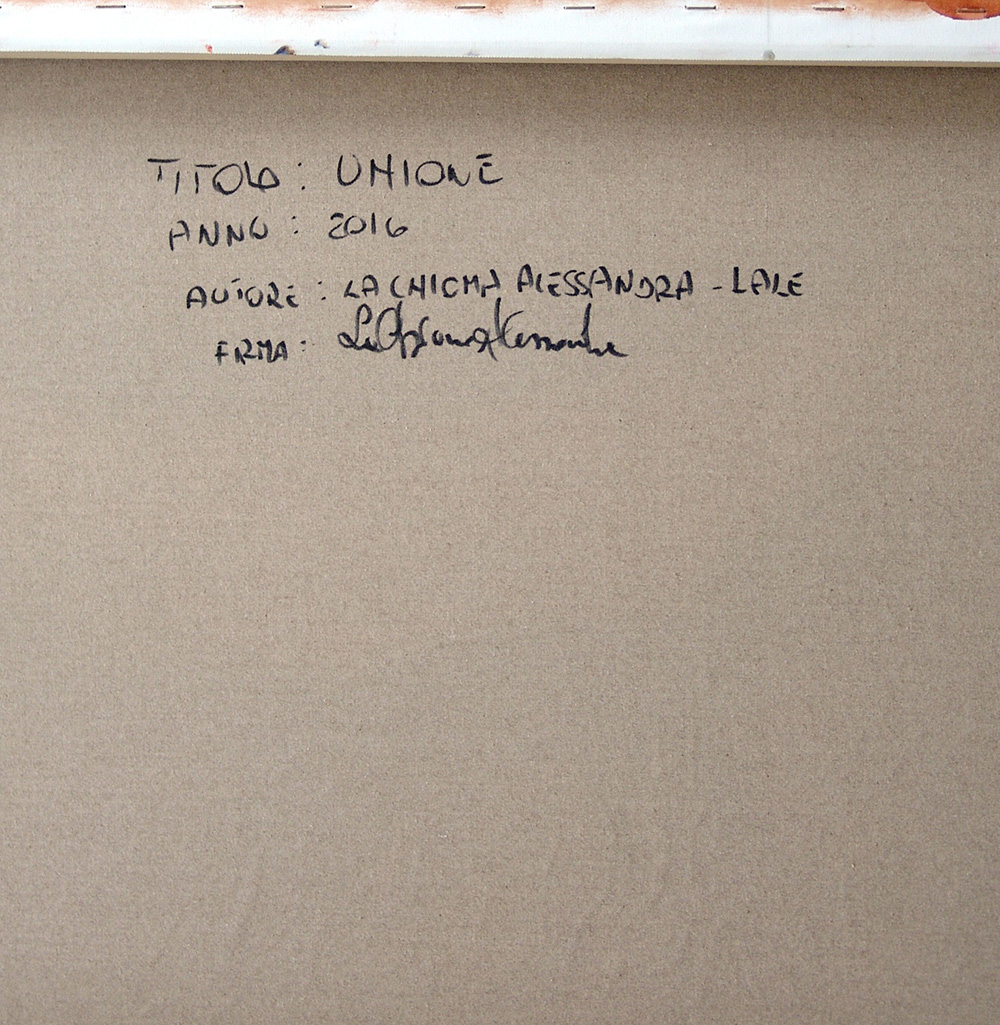 TITOLO: UNIONE
ANNO: 2016
AUTORE: LA CHIOMA ALESSANDRA - LALE
FIRMA: La Chioma Alessandra